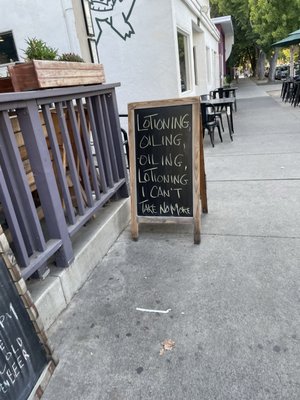 LOTIONING,
OILING,
OILING,
LOTIONING
I CAN'T
TAKE NO MORE